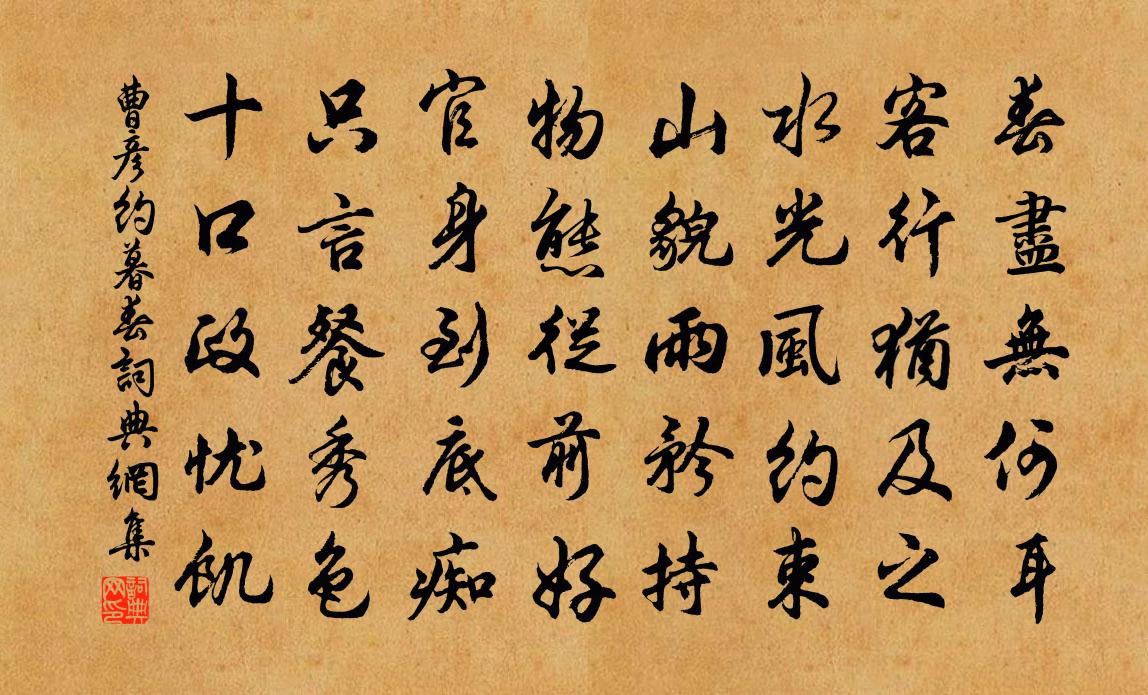 春盡無何耳
客行猶及之
水光風約束
山貌雨矜持
物態從前好
官身到底痴
只言餐秀色
十口政忧飢
曹彦約暮春詞典網集
詞典网印